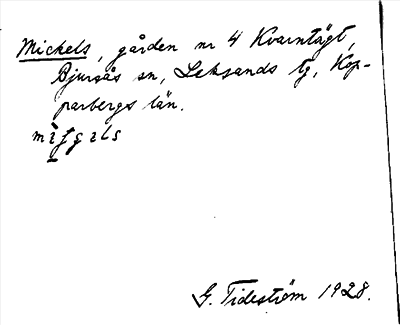 Michels, gården nr 4 Kvarntägt,
Bjursås sn, Leksands tg, Kop-
parbergs län.

G. Tideström 1928.